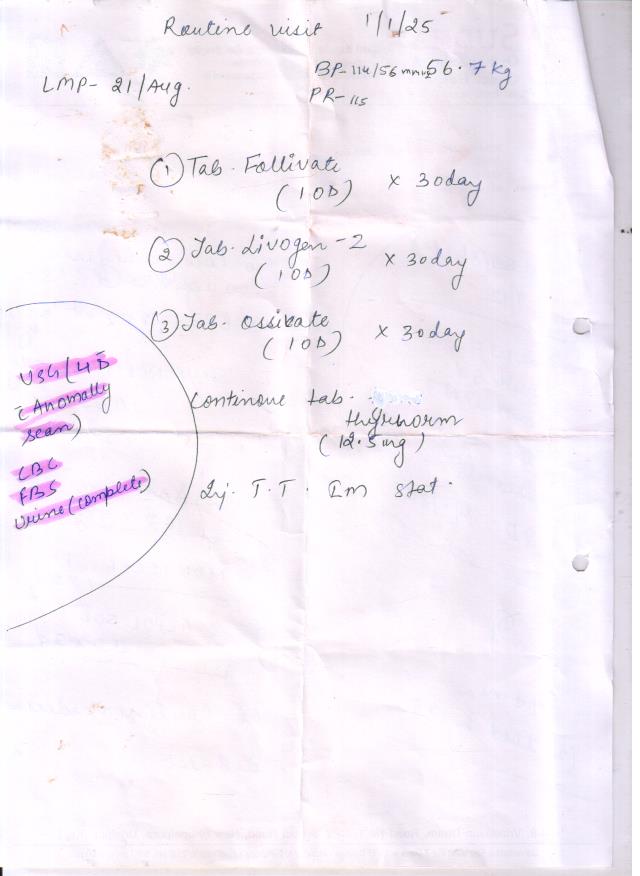 Routine visit 1/1/25
BP- 114/56 mmHg 56.7 kg
LMP- 21/Aug.
PR- 115
① Tab. Follivate
(1 OD) x 30day
② Tab. Livogen-Z
(1 OD) x 30day
③ Tab. Ossivate
(1 OD) x 30day
USG/4D
(Anomally
scan)
CBC
FBS
Urine (complete)
Continoue tab.
thyronorm
(12.5mg)
Inj. T.T. Im stat.